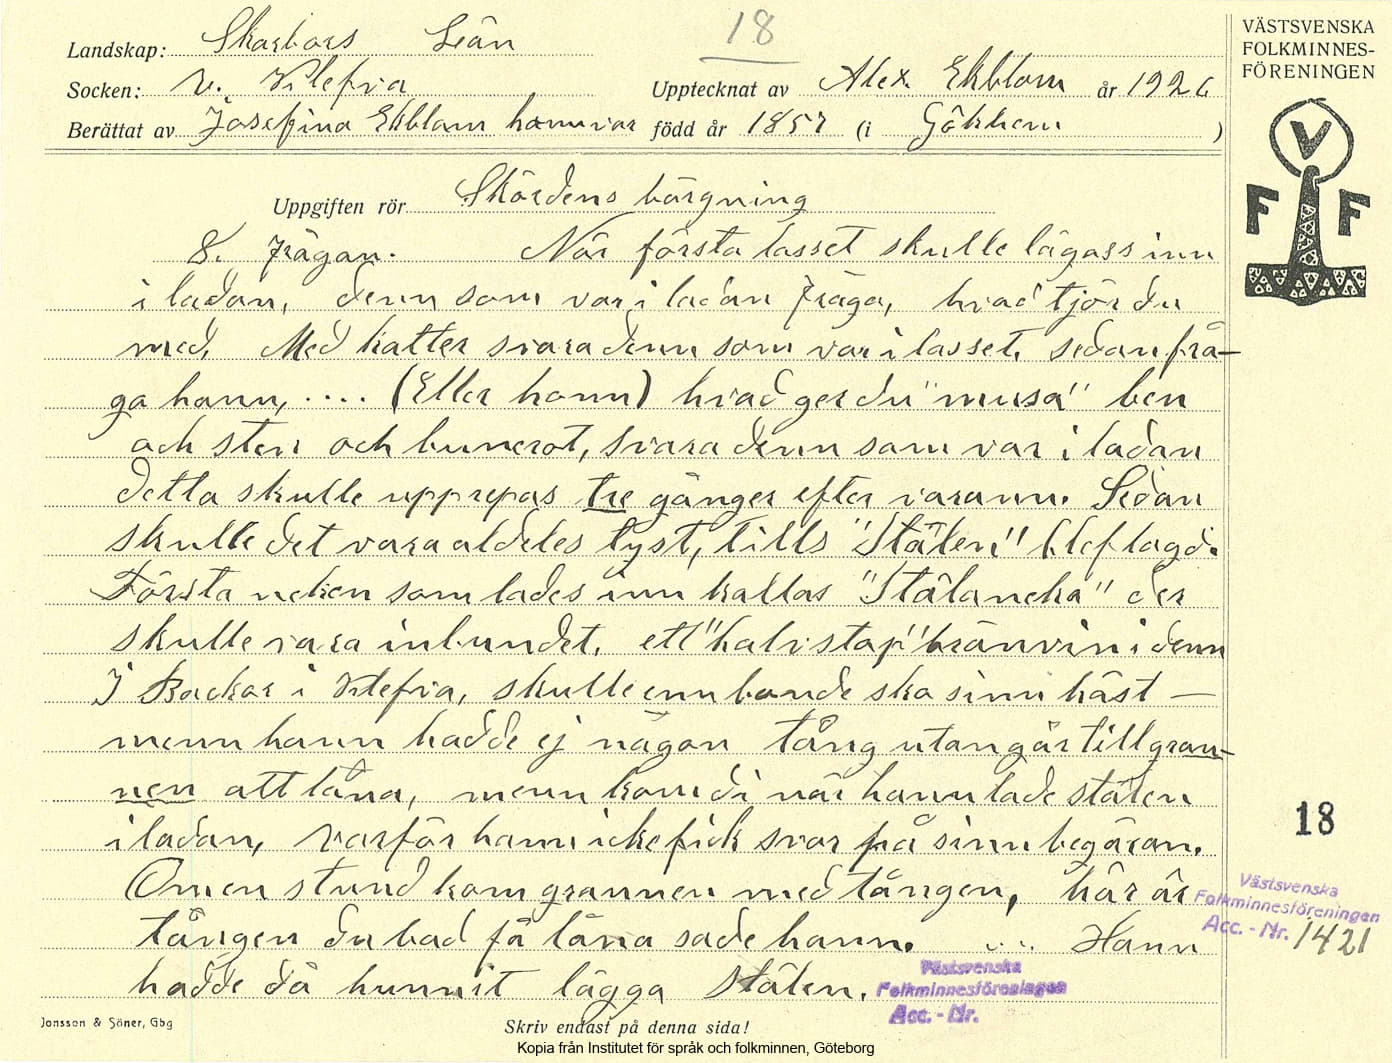 18
VÄSTSVENSKA
FOLKMINNES-
FÖRENINGEN
Landskap: Skarbors Län
Socken: V. Klefva Upptecknat av Alex. Ekblom år 1926
Berättat av Josefina Ekblom född år 1857 (i Gökhem )
V
F F
Uppgiften rör Skördens bärgning
8. frågan. När första lasset skulle lägass inn
i ladan, denn som var i ladan fråga, hvad tjör du
med. Med katter svara denn som var i lasset. sedan frå-
ga hann, .... (Eller honn) hvad ger du "musa" ben
och sten och bunerot, svara denn som var i ladan
detta skulle upprepas tre gånger efter varann. Sedan
skulle det vara aldeles tyst, tills "Stålen" blef lagd.
Första neken som lades inn kallas "Stålaneka" der
skulle vara inbundet. ett "halvstop" bränvin i denn
I Backor i Klefva, skulle enn bonde sko sinn häst —
menn hann hadde ej någon tång utan går till gran-
nen att låna, menn kom di när hann lade stålen
i ladan, varför hann icke fick svar på sinn begäran.
Om en stund kom grannen med tången, här är
tången du bad få låna sade hann. ... Hann
hadde då hunnit lägga Stålen.
18
Västsvenska
Folkminnesföreningen
Acc. - Nr. 1421
Västsvenska
Folkminnesföreningen
Acc. - Nr.
Jonsson & Söner, Gbg
Skriv endast på denna sida!
Kopia från Institutet för språk och folkminnen, Göteborg